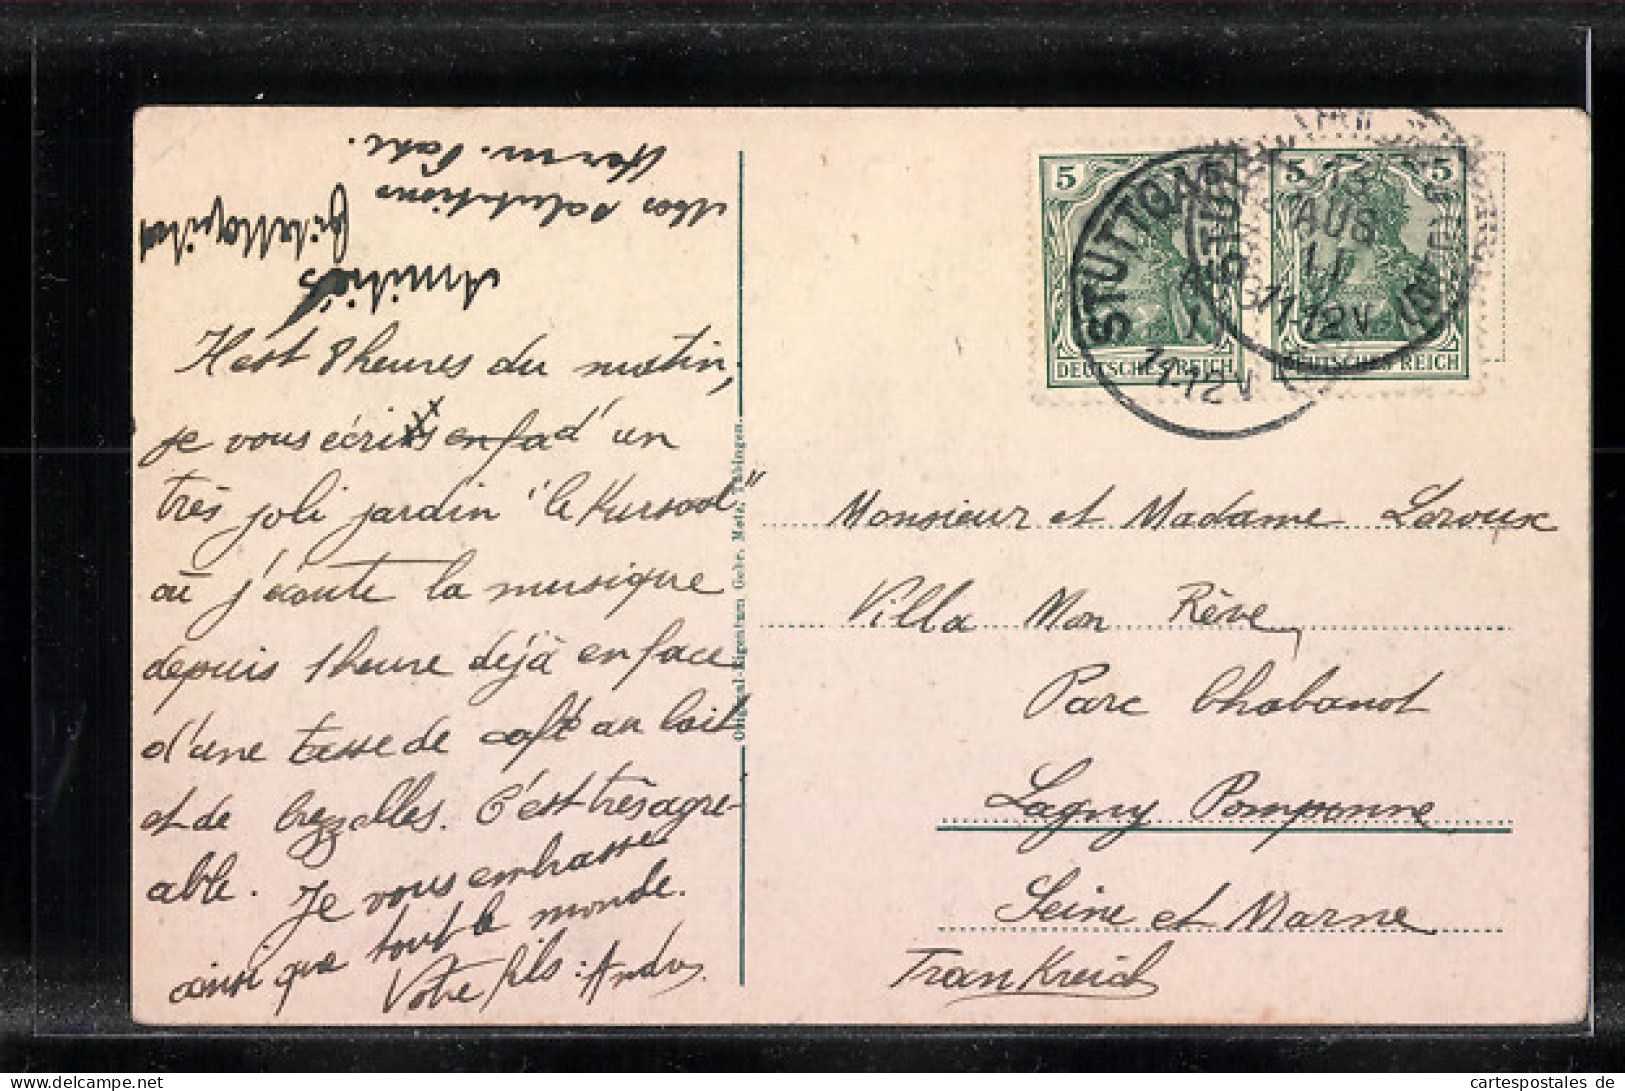 Mes salutations
Herm. Pahl.
Amitiés
Il est 8 heures du matin,
je vous écris en fad d'un
très joli jardin "le Kursaal"
où j'écoute la musique
depuis 1 heure déjà en face
d'une tasse de café au lait
et de brezzelles. C'est très agré-
able. Je vous embrasse
ainsi que tout le monde.
Votre fils: André
Original-Eigentum Gebr. Metz, Tübingen.
5
5
5
5
DEUTSCHES REICH
DEUTSCHES REICH
STUTTGART
AUG
11-12V
STUTTGART
13
AUG
11
11-12V
Monsieur et Madame Leroux
Villa Mon Rêve,
Parc Chabanot
Lagny Pomponne
Seine et Marne
FranKreich
cartespostales de
www.delcampe.net